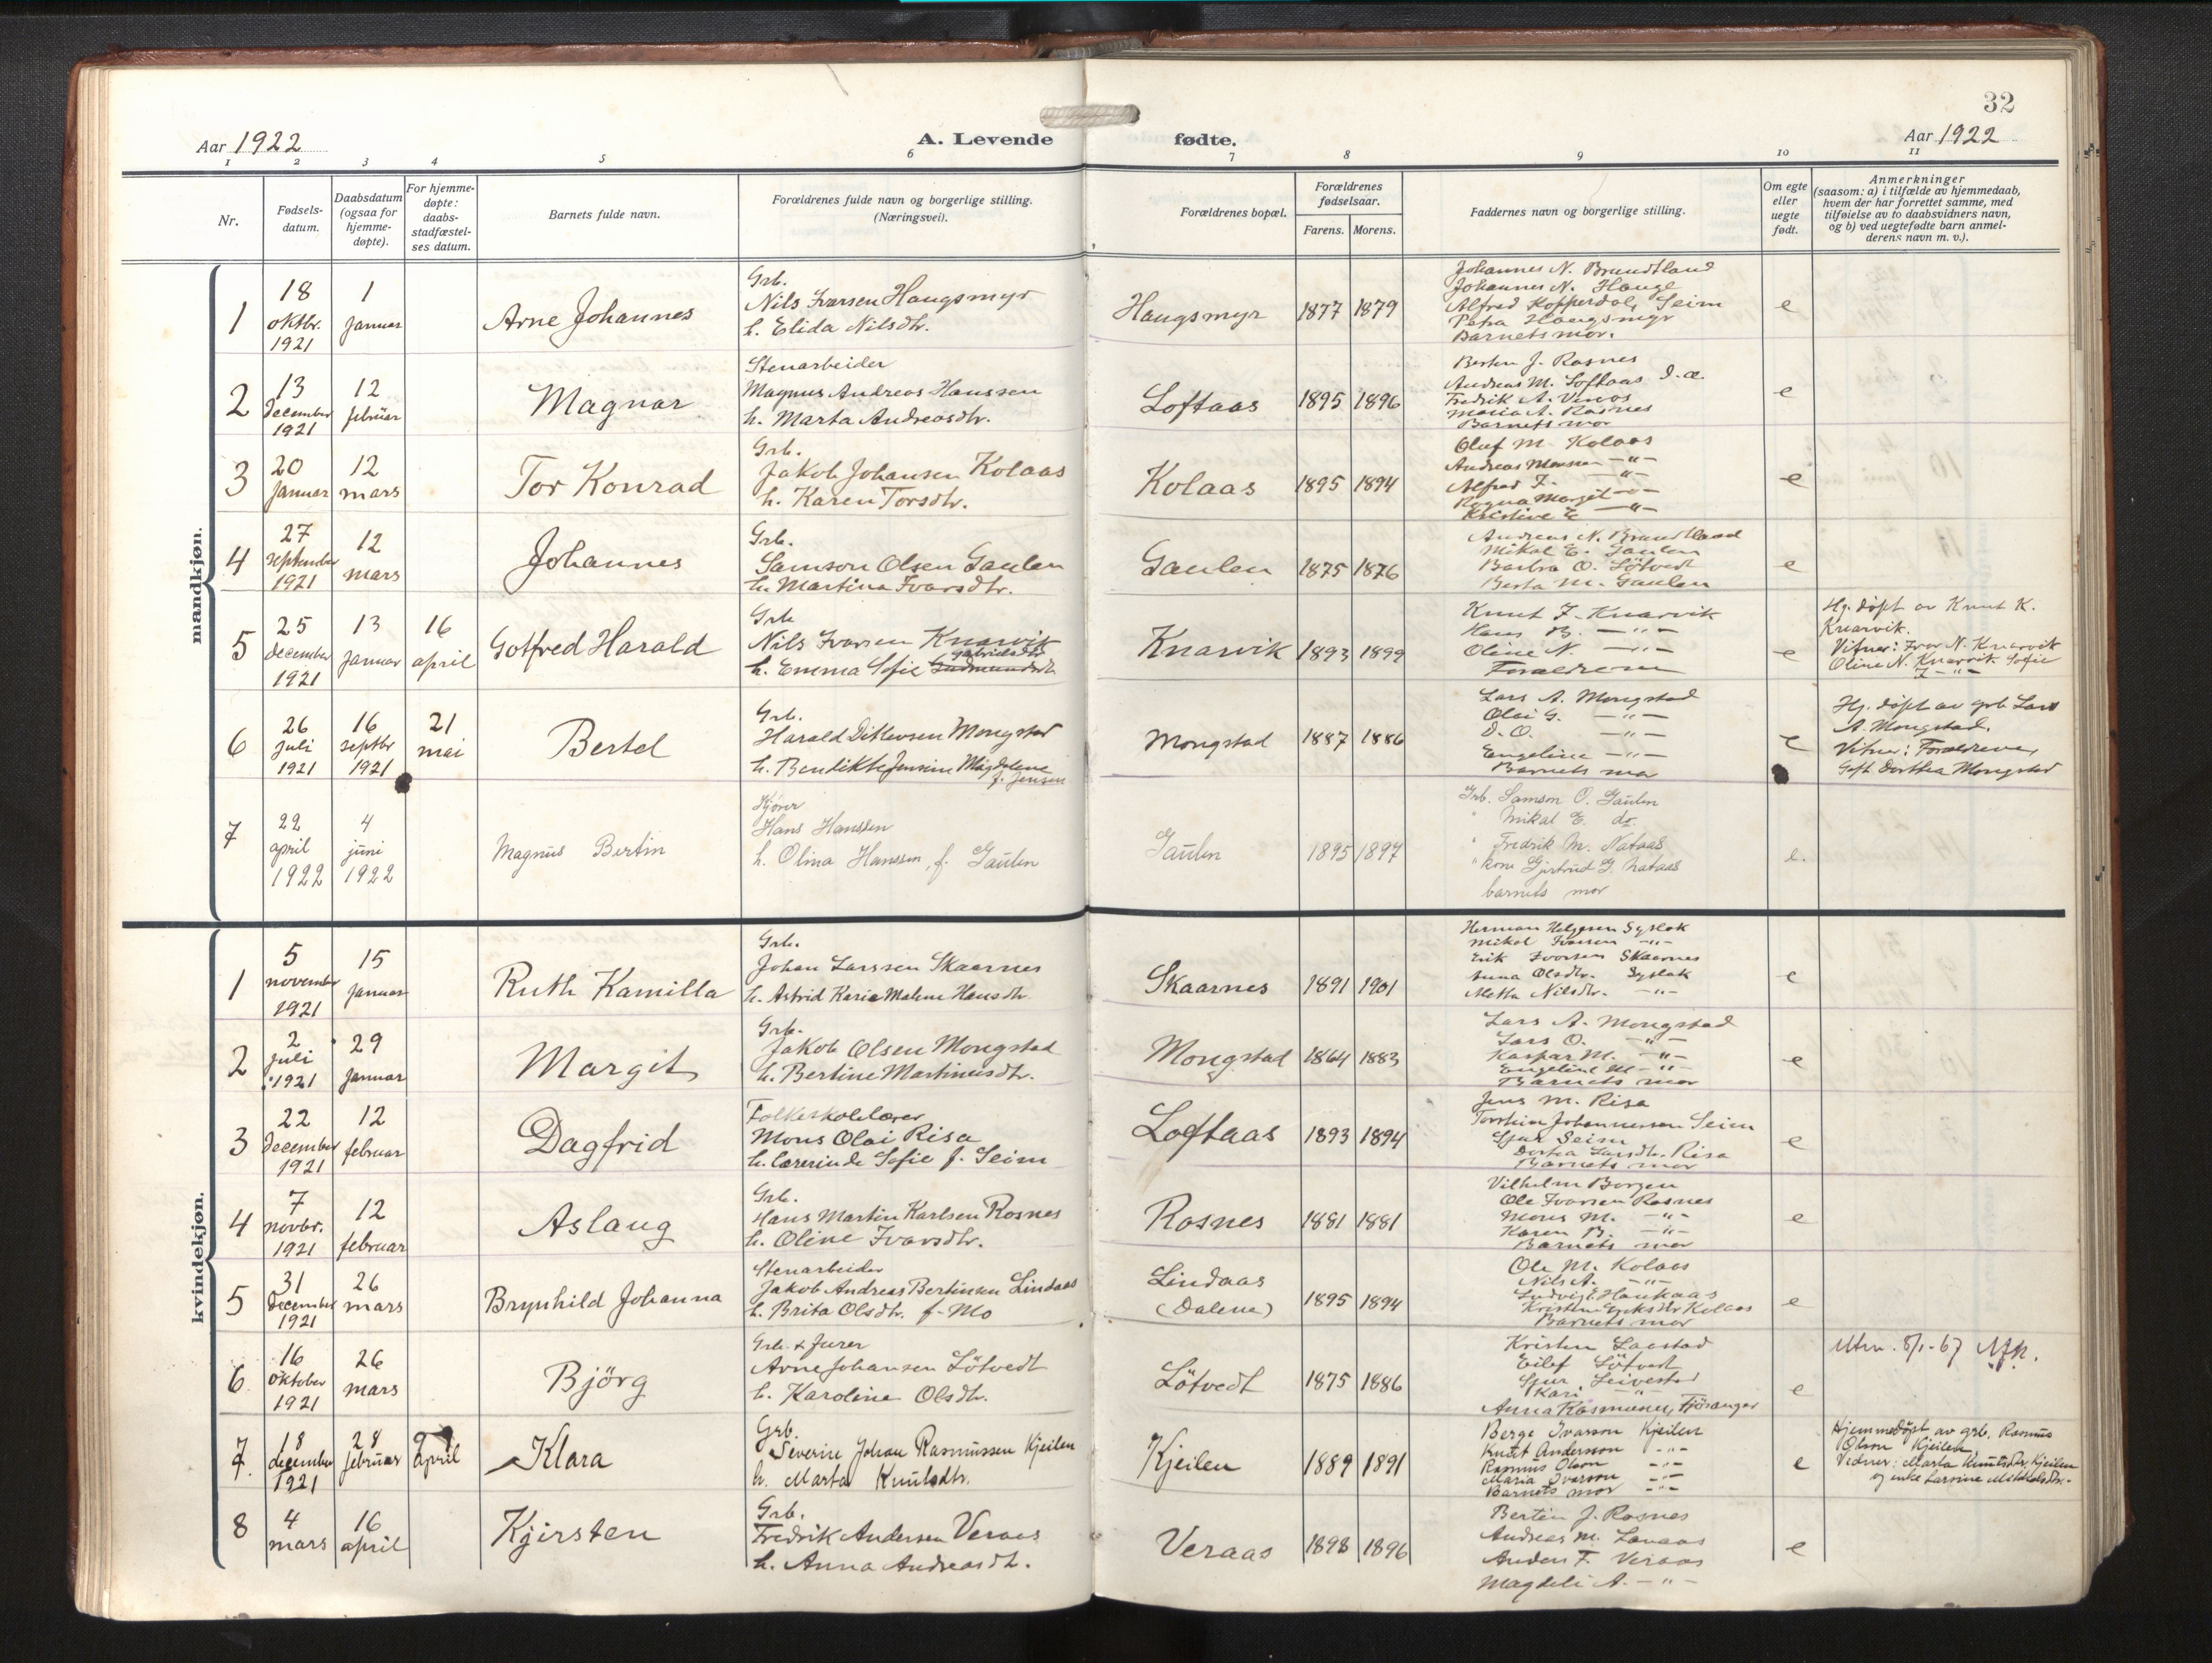 32
Aar 1922
A. Levende fødte.
Aar 1922
1 2 3 4 5 6 7 8 9 10 11
Nr.
Fødsels-
datum.
Daabsdatum
(ogsaa for
hjemme-
døpte).
For hjemme-
døpte:
daabs-
stadfæstel-
ses datum.
Barnets fulde navn.
Forældrenes fulde navn og borgerlige stilling.
(Næringsvei).
Forældrenes bopæl.
Forældrenes
fødselsaar.
Farens. Morens.
Faddernes navn og borgerlige stilling.
Om egte
eller
uegte
født.
Anmerkninger
(saasom: a) i tilfælde av hjemmedaab,
hvem der har forrettet samme, med
tilføielse av to daabsvidners navn,
og b) ved uegtefødte barn anmel-
derens navn m. v.).
mandkjøn.
1
18
oktbr.
1921
1
januar
Arne Johannes
Grb.
Nils Ivarsen Haugsmyr
h. Elida Nilsdtr.
Haugsmyr
1877 1879
Johannes N. Brundtland
Johannes N. Hauge
Alfred Kopperdal, Seim
Petra Haugsmyr
Barnets mor.
e
2
13
december
1921
12
februar
Magnar
Stenarbeider
Magnus Andreas Hanssen
h. Marta Andreasdtr.
Loftaas
1895 1896
Berten J. Rosnes
Andreas M. Loftaas d.æ.
Fredrik A. Veraas
Maria A. Rosnes
Barnets mor
e
3
20
januar
12
mars
Tor Konrad
Grb.
Jakob Johansen Kolaas
h. Karen Torsdtr.
Kolaas
1895 1894
Oluf M. Kolaas
Andreas Monsen —"—
Alfred J. —"—
Ragna Margit —"—
Kristine E —"—
e
4
27
september
1921
12
mars
Johannes
Grb.
Samson Olsen Gaulen
h. Martina Ivarsdtr.
Gaulen
1875 1876
Andreas N. Brundtland
Mikal E. Gaulen
Barbra O. Lötvedt
Berta M. Gaulen
e
5
25
december
1921
13
januar
16
april
Gotfred Harald
Grb
Nils Ivarsen Knarvik
Gabrielsdtr
h. Emma Sofie Gudmundsdt.
Knarvik
1893 1899
Knut J. Knarvik
Hans —"—
Oline N. —"—
Forældrene
e
Hj. døpt av Knut K.
Knarvik.
Vitner: Ivar N. Knarvik
Oline N. Knarvik. Sofie
J —"—
6
26
juli
1921
16
septbr
1921
21
mai
Bertel
Grb.
Harald Ditlevsen Mongstad
h. Bendikte Jensine Magdalene
f. Jensen
Mongstad
1887 1886
Lars A. Mongstad
Olai G. —"—
D. O. —"—
Engeline —"—
Barnets mor
e
Hj. døpt av grb Lars
A. Mongstad.
Vitner: Forældrene,
Gift Dorthea Mongstad
7
22
april
1922
4
juni
1922
Magnus Bertin
Kjører
Hans Hanssen
h. Olina Hanssen, f. Gaulen
Gaulen
1895 1897
Grb. Samson O. Gaulen
" Mikal E. do.
" Fredrik M. Nataas
" kone Gjertrud G. Nataas
barnets mor
e.
kvindekjøn.
1
5
november
1921
15
januar
Ruth Kamilla
Grb.
Johan Larssen Skaarnes
h. Astrid Karie Malene Hansdtr.
Skaarnes
1891 1901
Herman Helgesen Syslak
Mikal Ivarsen —"—
Erik Ivarsen Skaarnes
Anna Olsdtr. Syslak
Metta Nilsdtr. —"—
e
2
2
juli
1921
29
januar
Margit
Grb.
Jakob Olsen Mongstad
h. Bertine Martinusdtr.
Mongstad
1864 1883
Lars A. Mongstad
Lars O. —"—
Kaspar M. —"—
Engeline M —"—
Barnets mor
e
3
22
december
1921
12
februar
Dagfrid
Folkeskolelærer
Mons Olai Risa
h. lærerinde Sofie f. Seim
Loftaas
1893 1894
Jens M. Risa
Torstein Johannessen Seim
Sjur Seim
Dortea Larsdtr. Risa
Barnets mor
e
4
7
novbr.
1921
12
februar
Aslaug
Grb.
Hans Martin Karlsen Rosnes
h. Oline Ivarsdtr.
Rosnes
1881 1881
Vilhelm Borgen
Ole Ivarsen Rosnes
Mons M. —"—
Karen B. —"—
Barnets mor
e
5
31
december
1921
26
mars
Brynhild Johanna
Stenarbeider
Jakob Andreas Bertinsen Lindaas
h. Brita Olsdtr. f. Mo
Lindaas
(Dalene)
1895 1894
Ole M. Kolaas
Nils A. —"—
Ludvig E. Haukaas
Kristen Eriksdtr Kolaas
Barnets mor
e
6
16
oktober
1921
26
mars
Björg
Grb. & Jurer
Arne Johansen Lötvedt
h. Karoline Olsdtr.
Lötvedt
1875 1886
Kristen Lavstad
Eilef Lötvedt
Sjur Seivestad
Kari "
Anna Rasmussen, Fjösanger
e
Utm. 5/1-67
7.
18
december
1921
28
februar
9
april
Klara
Grb.
Severin Johan Rasmussen Kjeilen
h. Marta Knutsdtr.
Kjeilen
1889 1891
Berge Ivarson Kjeilen
Knut Anderson —"—
Rasmus Olson —"—
Maria Ivarson —"—
Barnets mor —"—
e
Hjemmedøpt av grb. Rasmus
Olson Kjeilen.
Vidner: Marta Knutsdtr. Kjeilen
og enke Larsine Mikkelsdtr. —"—
8
4
mars
16
april
Kjirsten
Grb.
Fredrik Andersen Veraas
h. Anna Andreasdt.
Veraas
1898 1896
Bertin J. Rosnes
Andreas M. Lavaas
Anders F. Veraas
Magdeli A. —"—
e